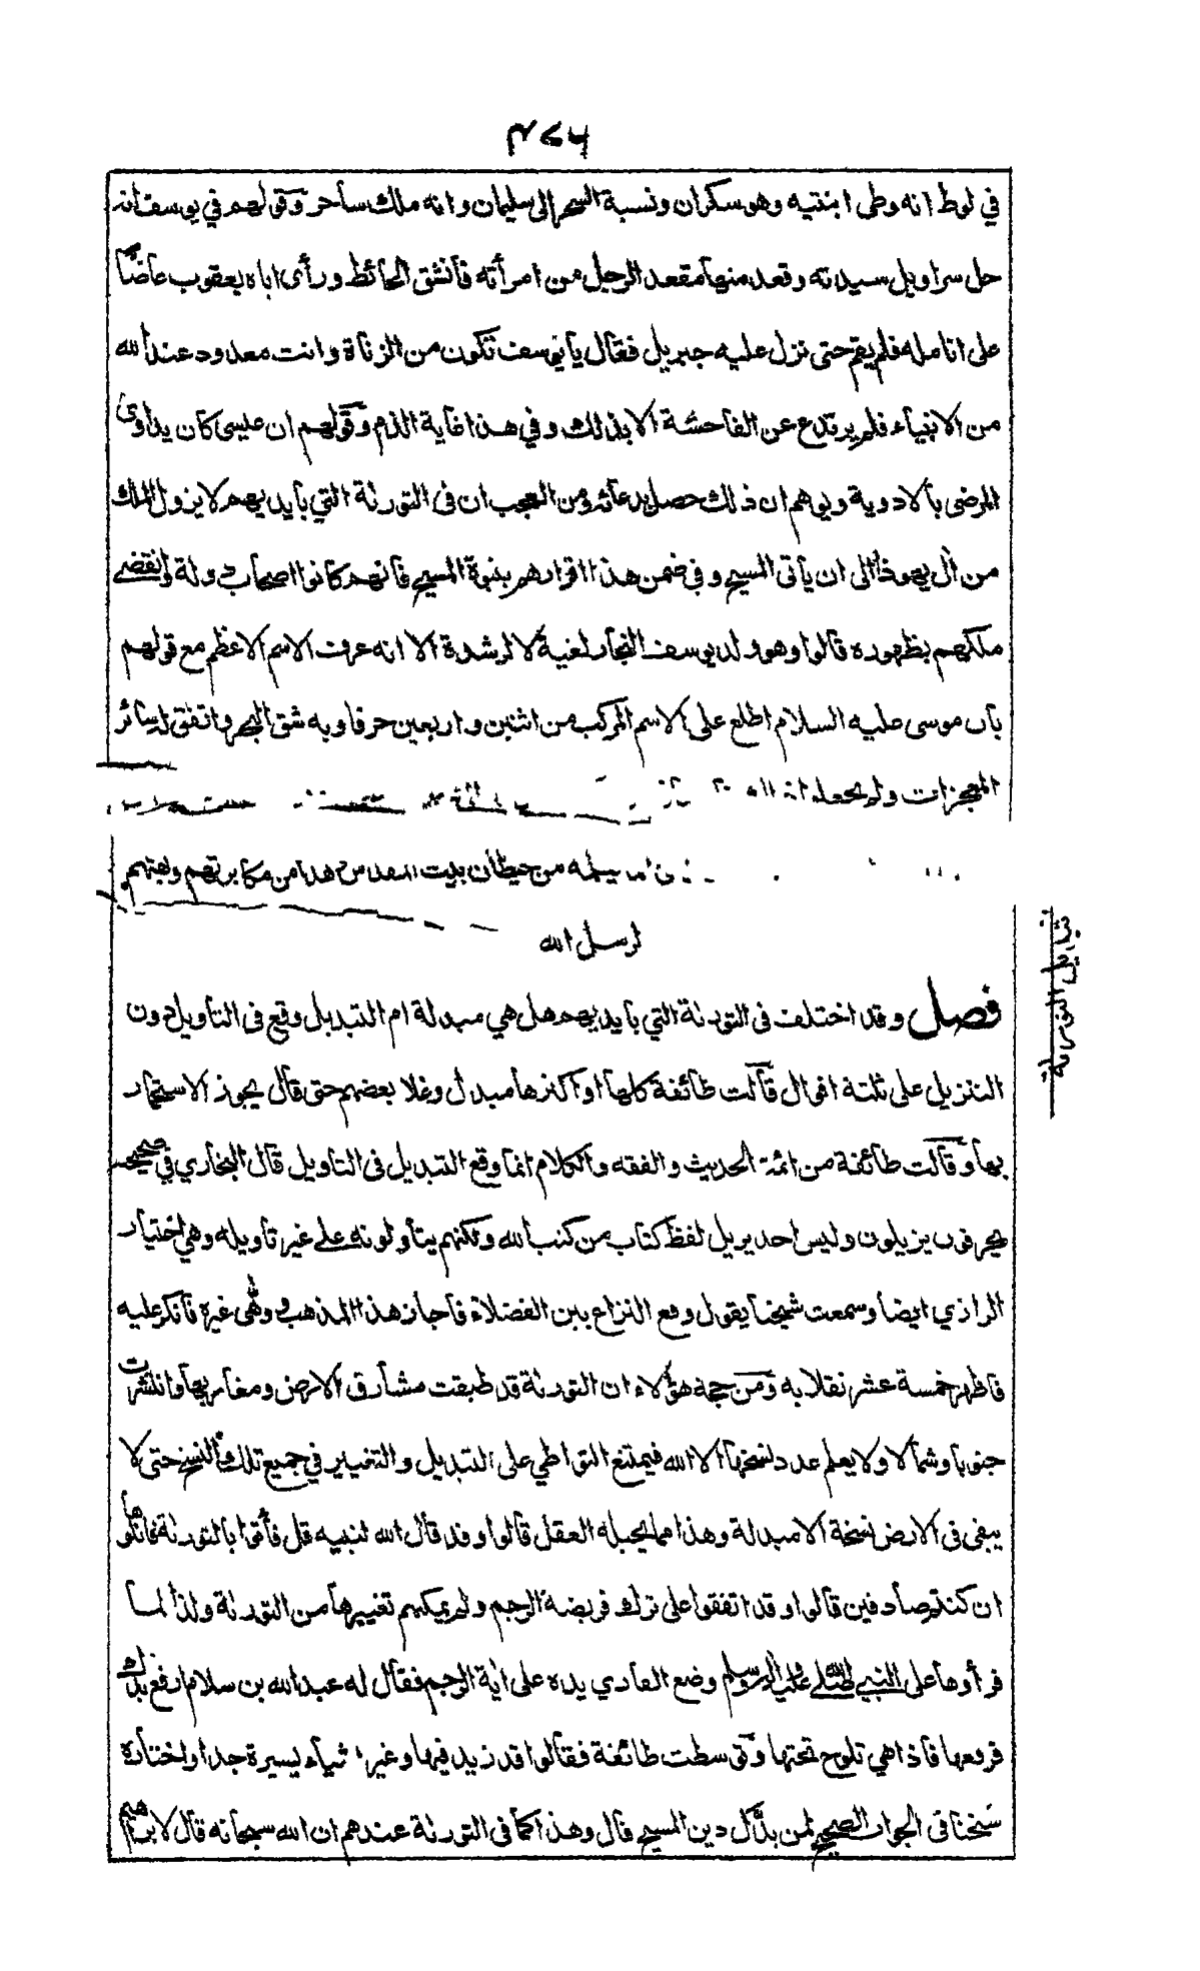 ٤٢٦
في لوط انه وطى ابنتيه وهو سكران ونسبة السحر الى سليمان وانه ملك ساحر وقولهم في يوسف انه
حل سراويل سيدته وقعد منها مقعد الرجل من امرأته فانشق الحائط ورأى اباه يعقوب عاضا
على انامله فلم يقم حتى نزل عليه جبريل فقال يا يوسف تكون من الزناة وانت معدود عند الله
من الانبياء فلم يرتدع عن الفاحشة الا بذلك وفي هذا غاية الذم وقولهم ان عيسى كان يداوى
المرضى بالادوية ويوهم ان ذلك حصل بدعائه ومن العجب ان فى التورىة التي بايديهم لا يزول الملك
من آل يهوذا الى ان يأتى المسيح وفي ضمن هذا اقرارهم بنبوة المسيح فانهم كانوا اصحاب دولة وانقضى
ملكهم بظهوره قالوا وهو ولد يوسف النجار لغية لا لرشدة الا انه عرف الاسم الاعظم مع قولهم
بان موسى عليه السلام اطلع على الاسم المركب من اثنين واربعين حرفا وبه شق البحر واتفق له سائر
المعجزات ولم يجعله
من حيطان بيت المقدس هذا من مكابرتهم وبهتهم
لرسل الله
فصل وقد اختلف فى التورىة التي بايديهم هل هي مبدلة ام التبديل وقع فى التأويل دون
التنزيل على ثلثة اقوال قالت طائفة كلها او اكثرها مبدل وغلا بعضهم حتى قال يجوز الاستجمار
بها وقالت طائفة من ائمة الحديث والفقه والكلام انما وقع التبديل فى التاويل قال البخاري في صحيحه
يحرفون يزيلون وليس احد يزيل لفظ كتاب من كتب الله ولكنهم يتأولونه على غير تأويله وهي اختيار
الرازي ايضا وسمعت شيخنا يقول وقع النزاع بين الفضلاء فاجاز هذا المذهب ووهى غيره فانكر عليه
فاظهر خمسة عشر نقلا به ومن حجة هؤلاء ان التورىة قد طبقت مشارق الارض ومغاربها وانتشرت
جنوبا وشمالا ولا يعلم عدد نسخها الا الله فيمتنع التواطي على التبديل والتغيير في جميع تلك النسخ حتى لا
يبقى فى الارض نسخة الا مبدلة وهذا مما يحيله العقل قالوا وقد قال الله لنبيه قل فأتوا بالتورىة فاتلوها
ان كنتم صادقين قالوا وقد اتفقوا على ترك فريضة الرجم ولم يمكنهم تغييرها من التورىة ولذا لما
قرأوها على النبي صلى الله عليه واله وسلم وضع القاري يده على اية الرجم فقال له عبد الله بن سلام ارفع يدك
فرفعها فاذا هي تلوح تحتها وتوسطت طائفة فقالوا قد زيد فيها وغير اشياء يسيرة جدا واختاره
شيخنا في الجواب الصحيح لمن بدّل دين المسيح قال وهذا كما فى التورىة عندهم ان الله سبحانه قال لابراهيم
تبديل التورىة